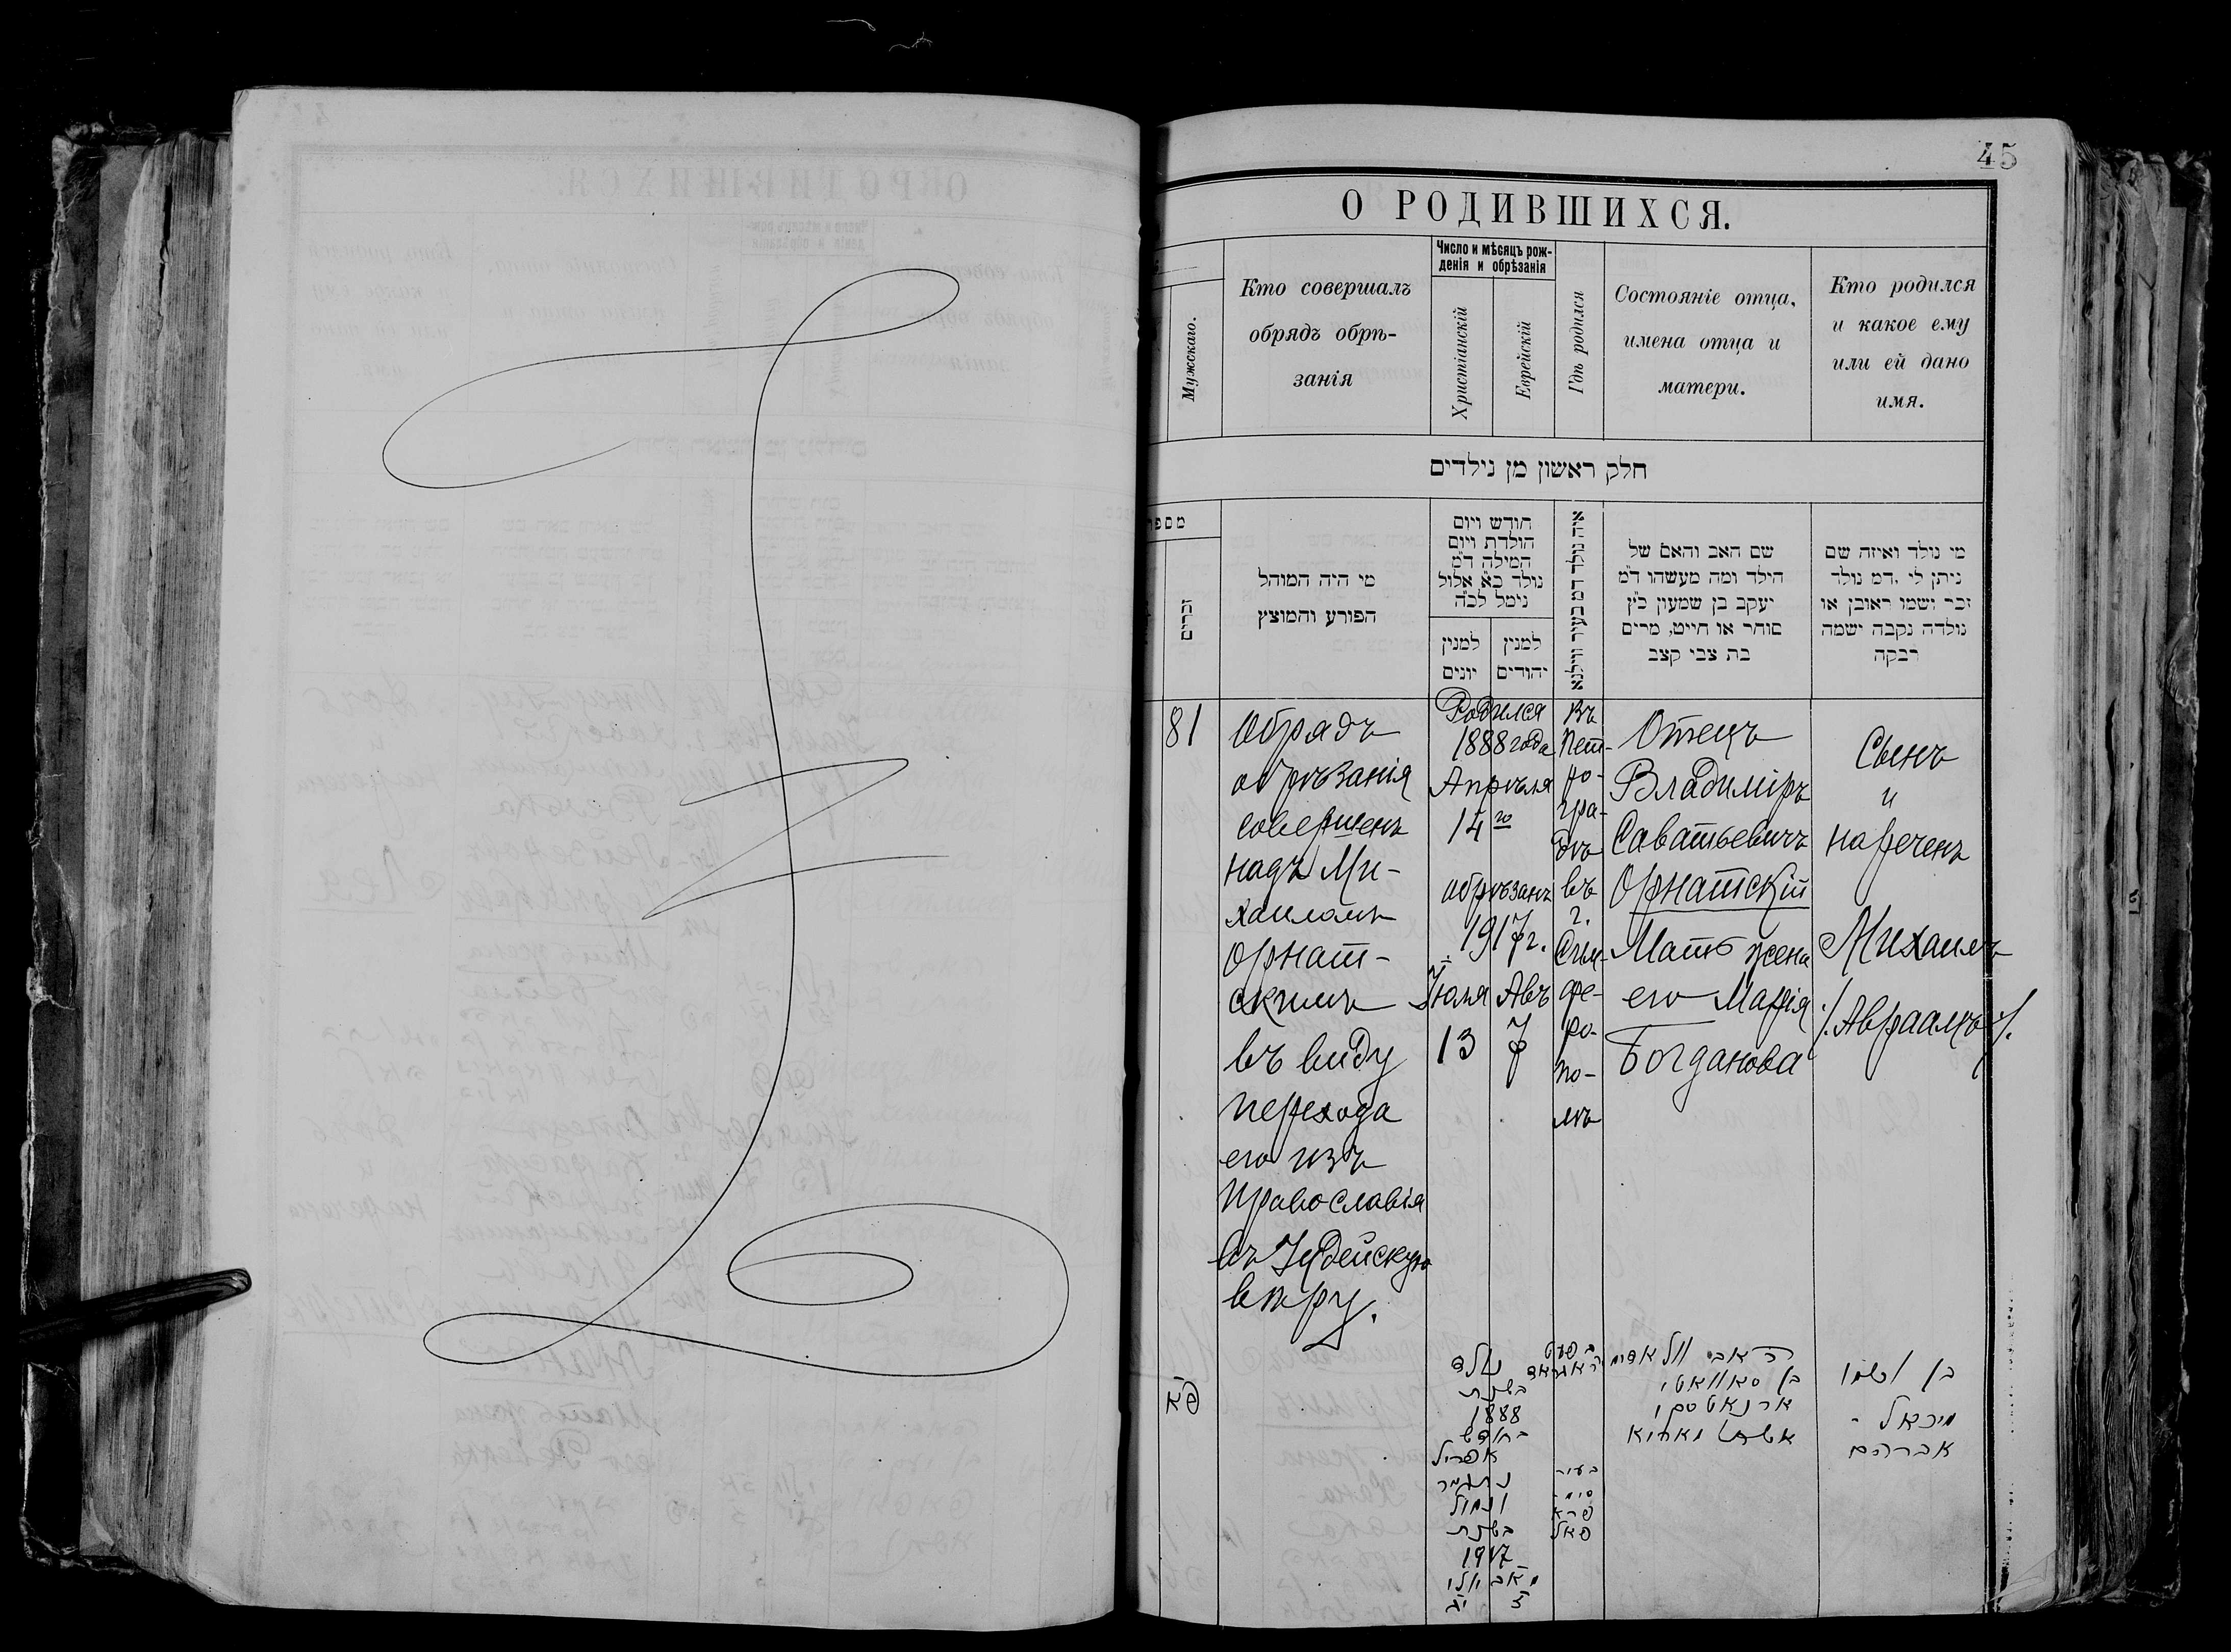 45
О РОДИВШИХСЯ.
Мужскаго.
Кто совершалъ
обрядъ обрѣ-
занія
Число и мѣсяцъ рож-
денія и обрѣзанія
Христіанскій
Еврейскій
Гдѣ родился
Состояніе отца,
имена отца и
матери.
Кто родился
и какое ему
или ей дано
имя.
חלק ראשון מן נילדים
מספר
זכרים
מי היה המוהל
הפורע והמוצץ
חודש ויום
הולדת ויום
המילה ד"מ
נולד כ"א אלול
נימל לכ"ה
למנין
יונים
למנין
יהודים
איה נולד דמ בעיר ווילנא
שם האב והאם של
הילד ומה מעשהו ד"מ
יעקב בן שמעון כ"ץ
סוחר או חייט, מרים
בת צבי קצב
מי נולד ואיזה שם
ניתן לו, דמ נולד
זכר ושמו ראובן או
נולדה נקבה ושמה
רבקה
81
Обрядъ
обрѣзанія
совершенъ
надъ Ми-
хаиломъ
Орнат-
скимъ
въ виду
перехода
его изъ
Православія
въ Іудейскую
вѣру.
Родился
1888 года
Апрѣля
14го
обрѣзанъ
1917 г.
Іюля Авъ
13 7
Въ
Пет-
ро-
гра-
дѣ
въ
г.
Сим-
фе-
ро-
по-
лѣ
Отецъ
Владиміръ
Саватьевичъ
Орнатскій
Мать жена
его Марія
Богданова
Сынъ
и
нареченъ
Михаилъ
/. Авраамъ /.
פא
נולד
בשנת
1888
בחודש
אפריל
ונמול
בשנת
1917
בעיר
סימ-
פרא
פאל
האב וולאדימיר
בן סאוואטי
ארנאטסקי
אשתו מאריא
בן ושמו
מיכאל -
אברהם